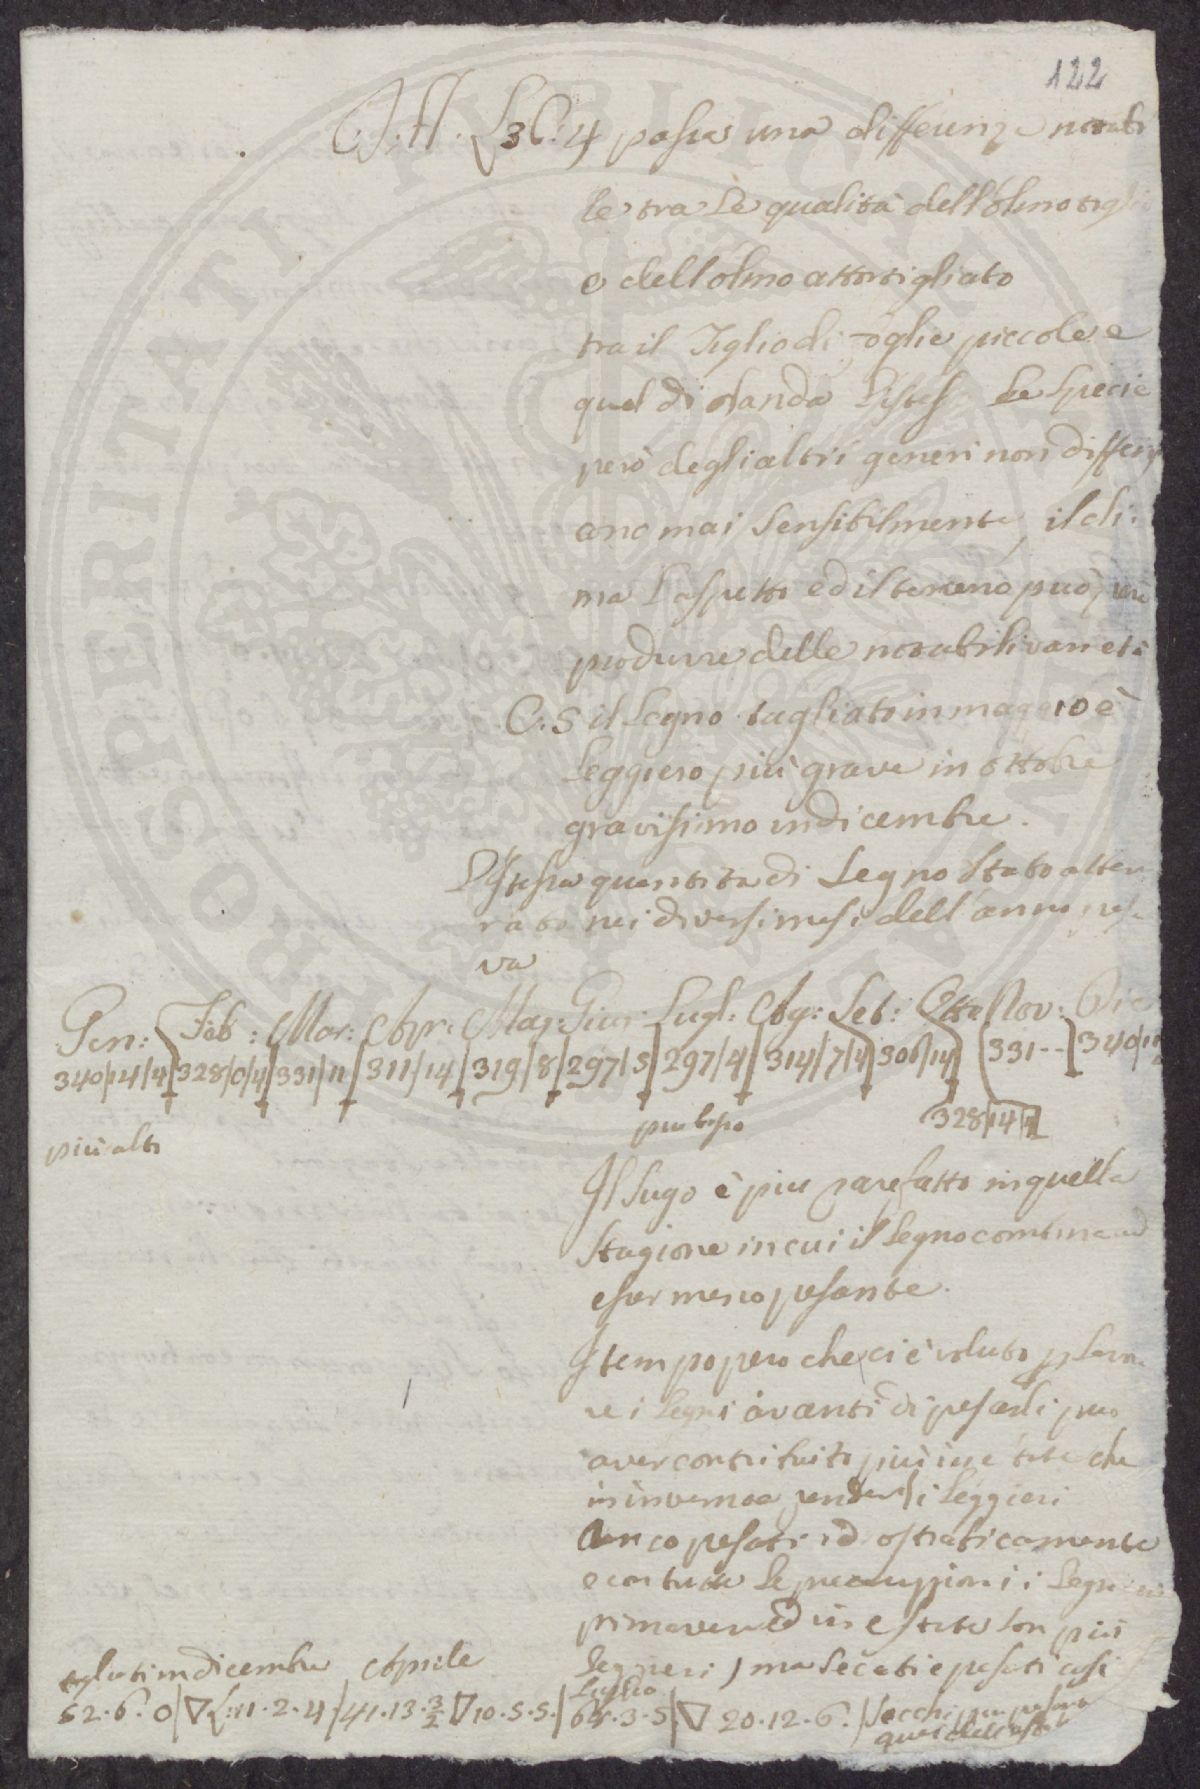 122
L 3 C. 4 passa una differenza notabi
le tra le qualità dell'olmo tigl
e dell'olmo attortigliato
tra il Tiglio di foglie piccole e
quel di olanda le specie
però degli altri generi non differis
cono mai sensibilmente, il cli:
ma l'aspetto ed il terreno può però
produrre delle notabili varietà
C. 5 il legno tagliato in maggio è
leggiero più grave in ottobre
gravissimo in dicembre.
L'istessa quantità di legno stato atter
rato nei diversi mesi dell'anno pesa
va
Gen: Feb: Mar: Apr: Mag: Giu: Lugl: Ag: Set: Otto Nov: Dic
340/14/4 328/0/4 331/11 311/14 319/8 297/5 297/4 314/7/4 306/14 331-- 340/11
più alto più basso 328/14/
Il sugo è piu rarefatto in quella
stagione in cui il legno comincia ad
esser meno pesante.
Il tempo pero che ci è voluto p
re i legni avanti di pesarli può
aver contribuito più in estate che
in inverno a renderli leggieri
Anco pesati idrostaticamente
e con tutte le precauzioni i legni in
primavera ed in estate son più
leggieri, ma seccati e pesati così
tagliati in dicembre Aprile Luglio
52.6.0 ∇ 11.2.4 / 41.13.3/2 ∇ 10.5.5. / 64.3.5 ∇ 20.12.6. / secchi piu pesano
quei dell'estate